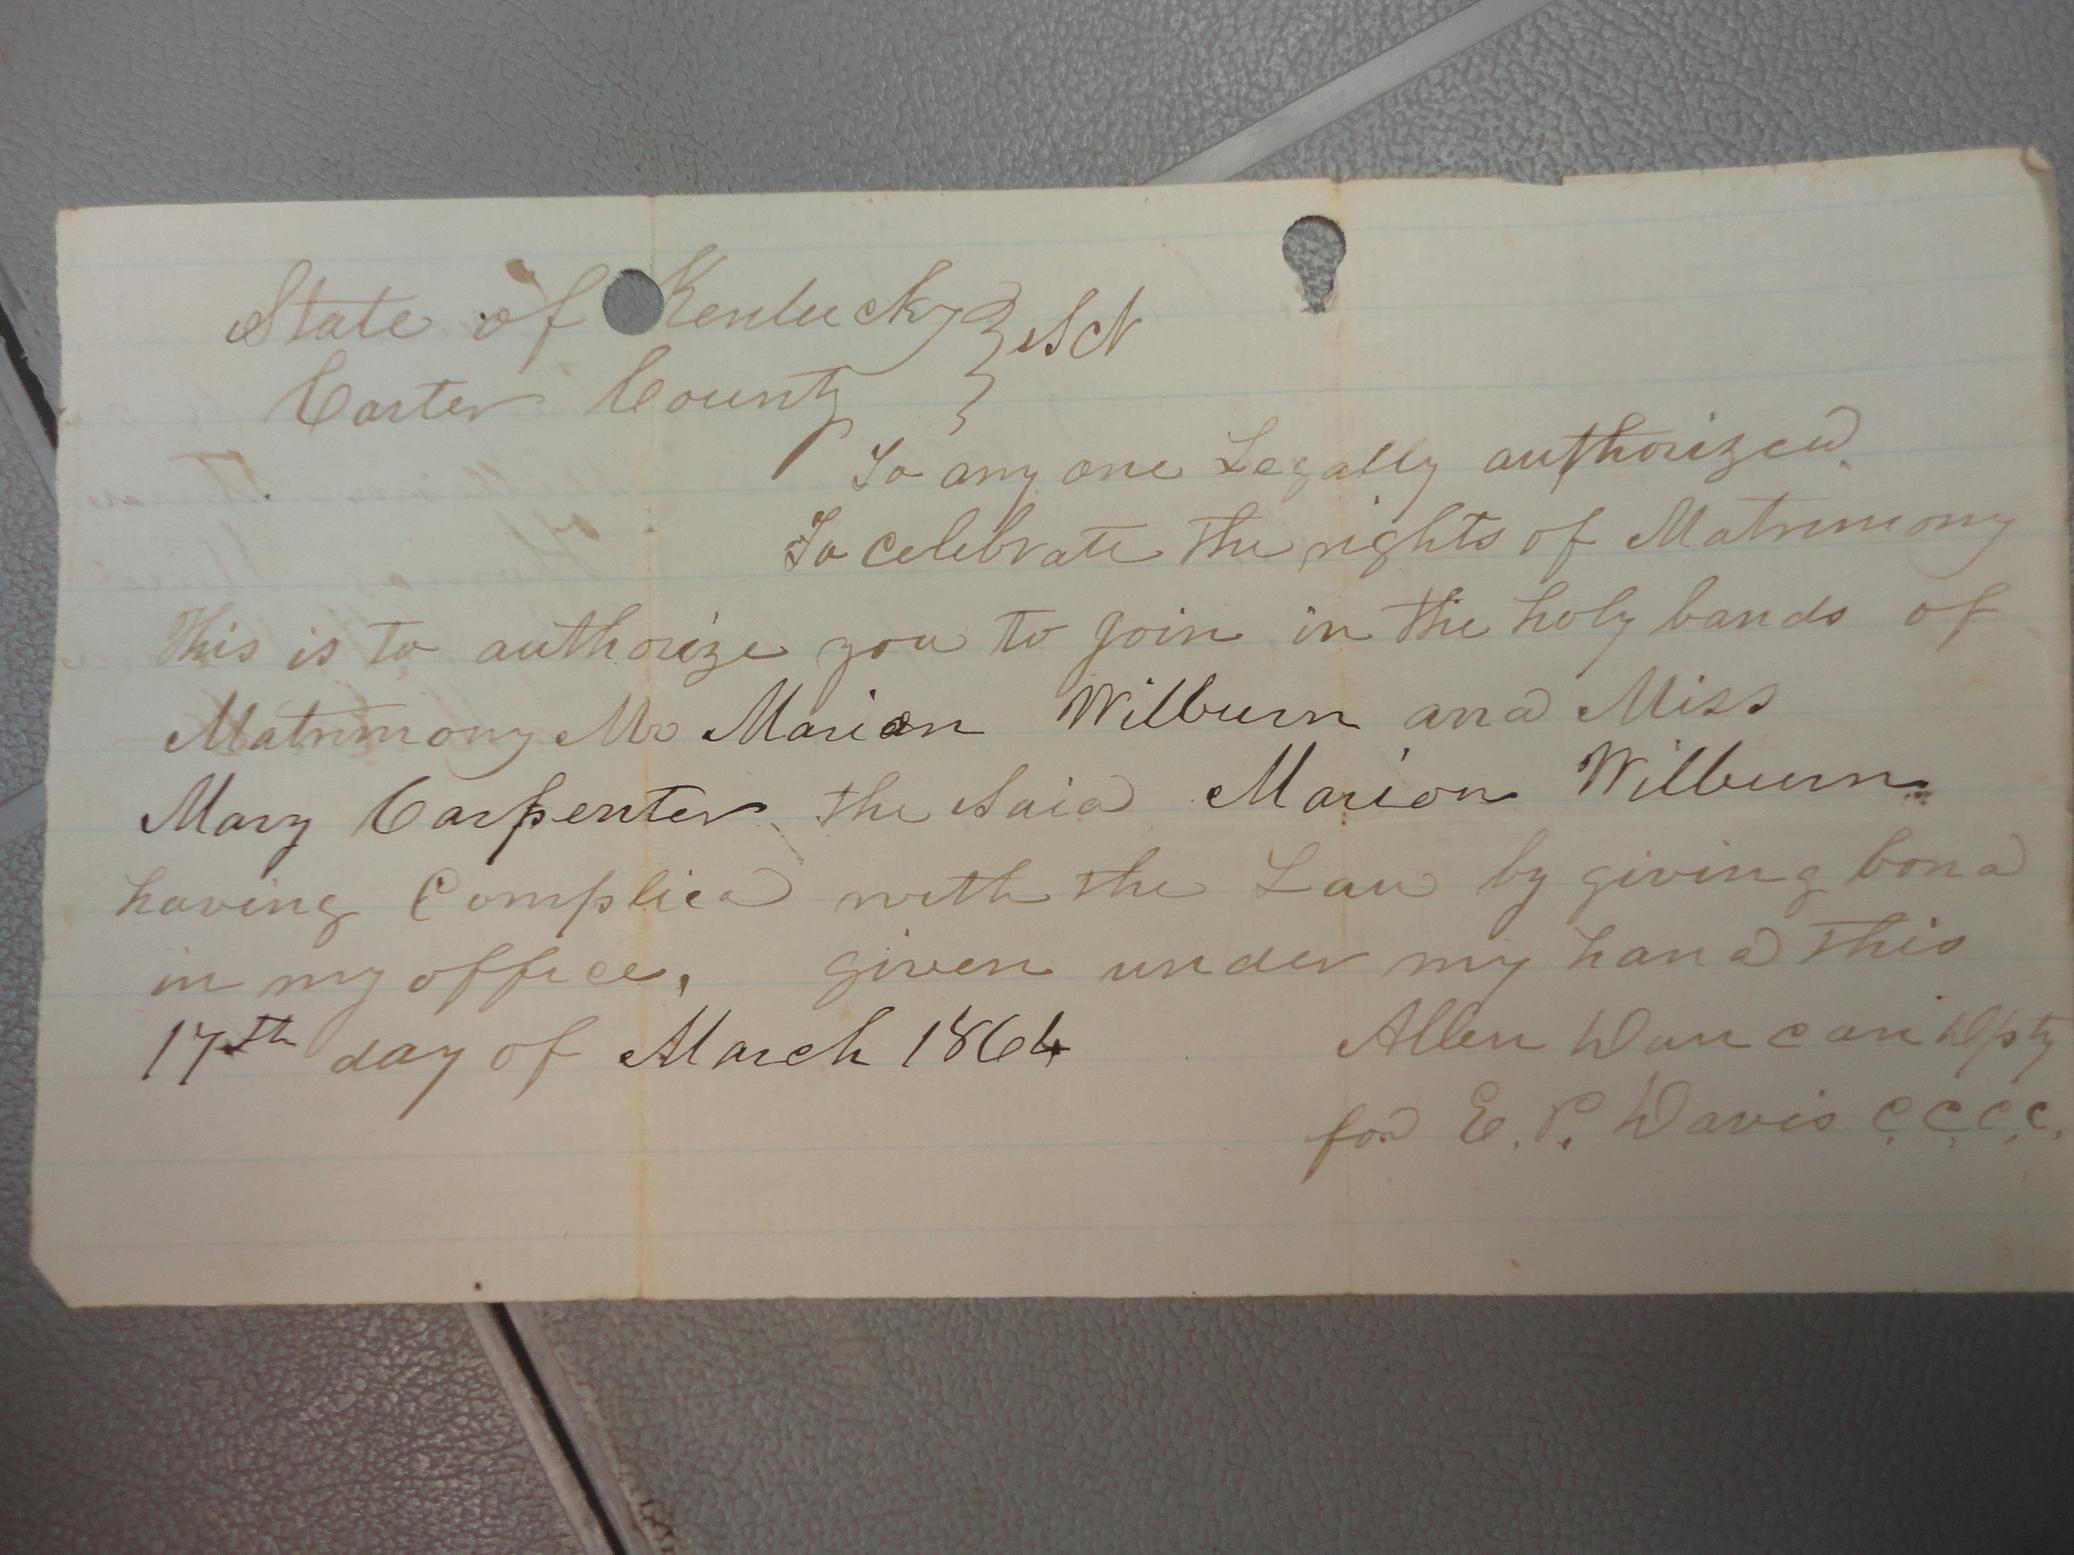 State of Kentucky } Sct
Carter County }
To any one Legally authorized
To celebrate the rights of Matrimony
This is to authorize you to join in the holy bands of
Matrimony Mr Marion Wilburn and Miss
Mary Carpenter the said Marion Wilburn
having Complied with the Law by giving bond
in my office, given under my hand this
17th day of March 1864 Allen Duncan Dpty
for E. P. Davis C.C.C.C.